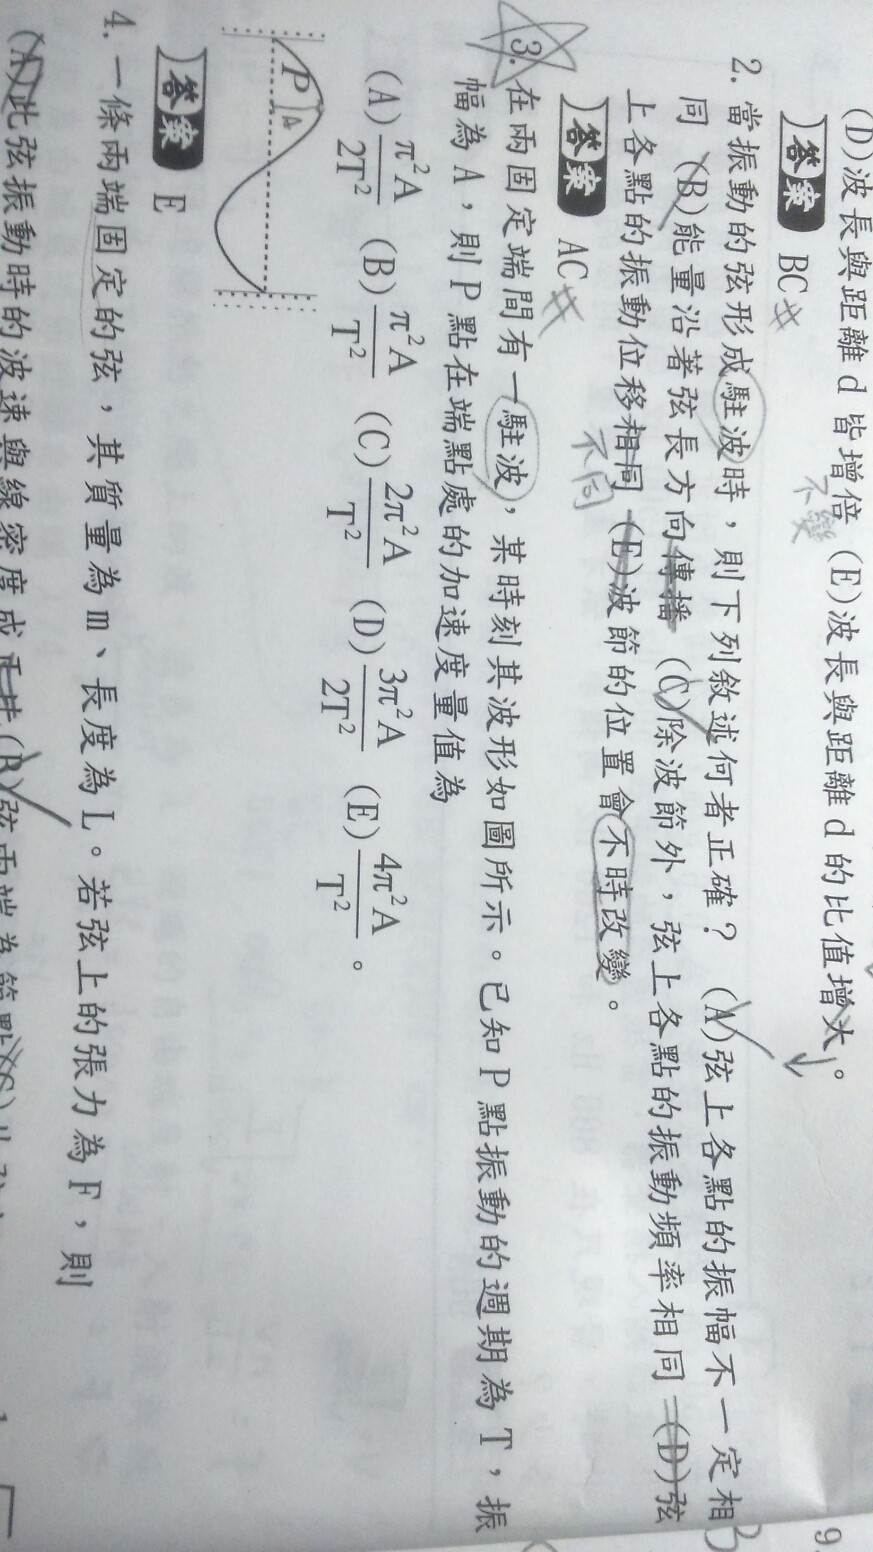 (D)波長與距離 d 皆增倍 (E)波長與距離 d 的比值增大。
不變
答案 BC
2. 當振動的弦形成駐波時，則下列敘述何者正確？ (A)弦上各點的振幅不一定相
同 (B)能量沿著弦長方向傳播 (C)除波節外，弦上各點的振動頻率相同 (D)弦
上各點的振動位移相同 (E)波節的位置會不時改變。
不同
答案 AC
3. 在兩固定端間有一駐波，某時刻其波形如圖所示。已知 P 點振動的週期為 T，振
幅為 A，則 P 點在端點處的加速度量值為
(A) π²A/2T² (B) π²A/T² (C) 2π²A/T² (D) 3π²A/2T² (E) 4π²A/T²。
P A
答案 E
4. 一條兩端固定的弦，其質量為 m、長度為 L。若弦上的張力為 F，則
(A)此弦振動時的波速與線密度成正比 (B)弦兩端為節點
9.